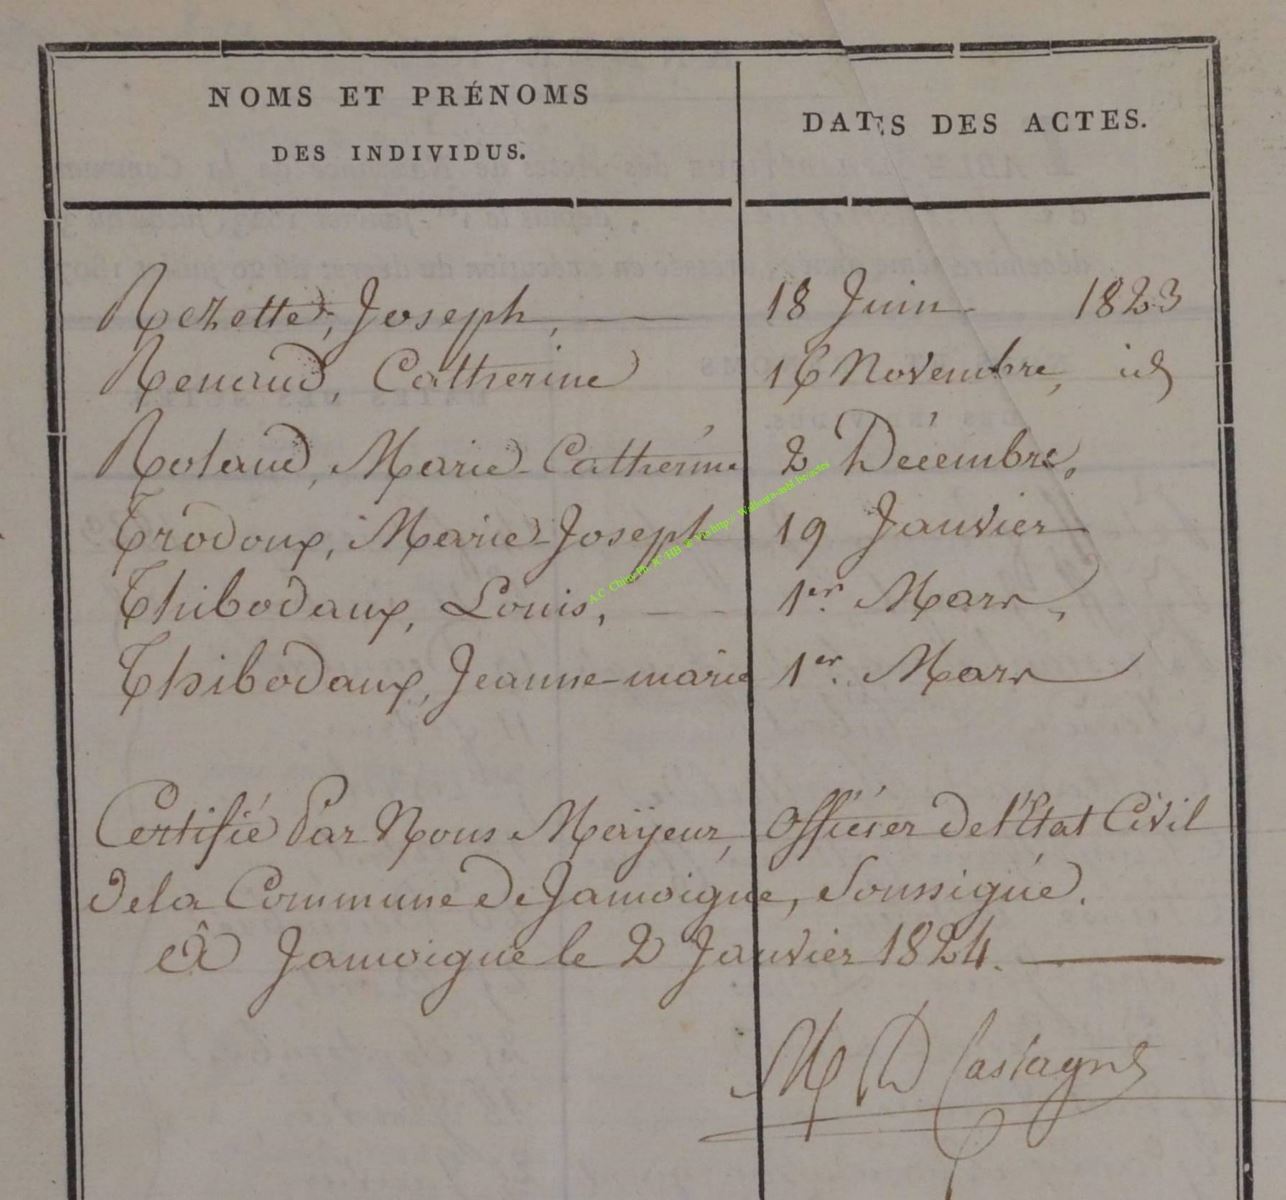 NOMS ET PRÉNOMS
DES INDIVIDUS.
DATES DES ACTES.
Rezette, Joseph, 18 Juin 1823
Renaud, Catherine 16 Novembre, id
Roland, Marie-Catherine 2 Décembre,
Trodoux, Marie-Joseph 19 Janvier
Thibodaux, Louis, 1er. Mars,
Thibodaux, Jeanne-marie 1er. Mars
Certifié Par Nous Mayeur, Officier de l'Etat Civil
de la Commune de Jamoigne, Soussigné.
à Jamoigne le 2 Janvier 1824.